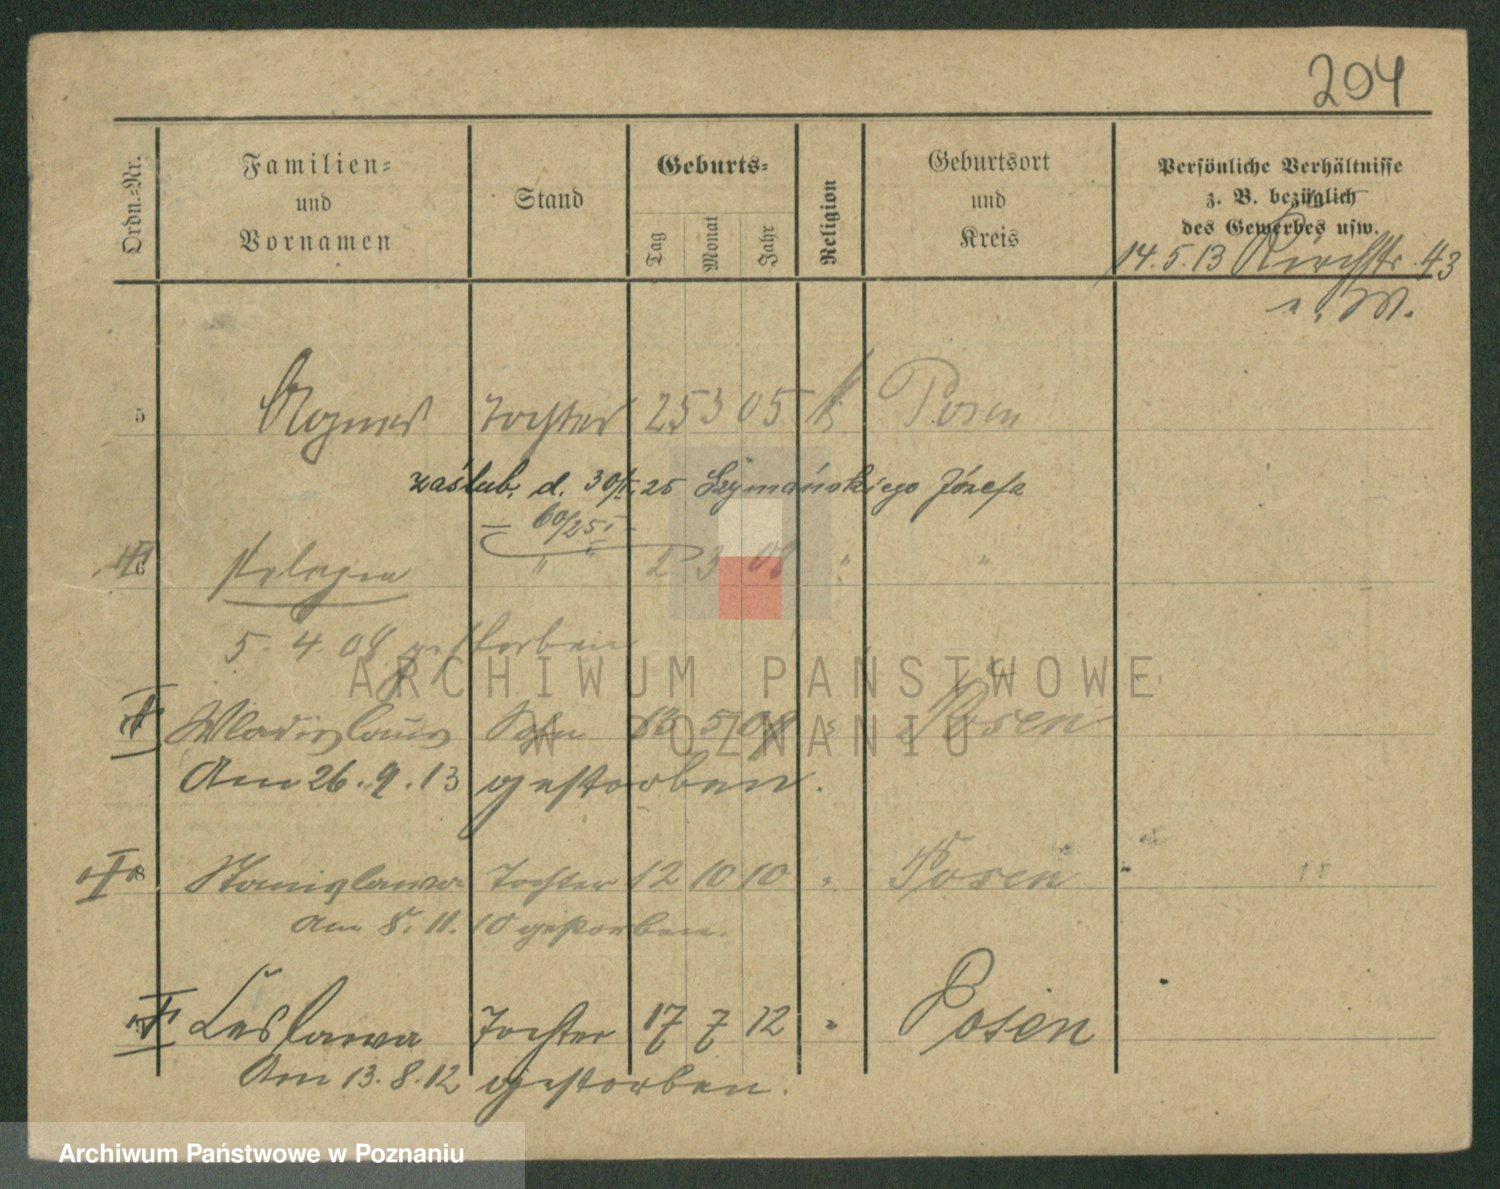 204
Ordn.-Nr.
Familien-
und
Vornamen
Stand
Geburts-
Tag
Monat
Jahr
Religion
Geburtsort
und
Kreis
Persönliche Verhältnisse
z. B. bezüglich
des Gewerbes usw.
14.5.13 Kirchstr. 43
5 Agnes Tochter 25 3 05 k Posen
zaślub. d. 30/I. 25 Szymańskiego Józefa
60/25 I
6 Pelagia " 2 3 08 " "
5. 4. 08 gestorben
ARCHIWUM PAŃSTWOWE
W POZNANIU
Wladislaus Sohn 13 5 09 " Posen
Am 26.9.13 gestorben.
8 Stanislawa Tochter 12 10 10 " Posen
Am 8. 11. 10 gestorben.
Leslawa Tochter 17 7 12 " Posen
Am 13.8.12 gestorben.
Archiwum Państwowe w Poznaniu